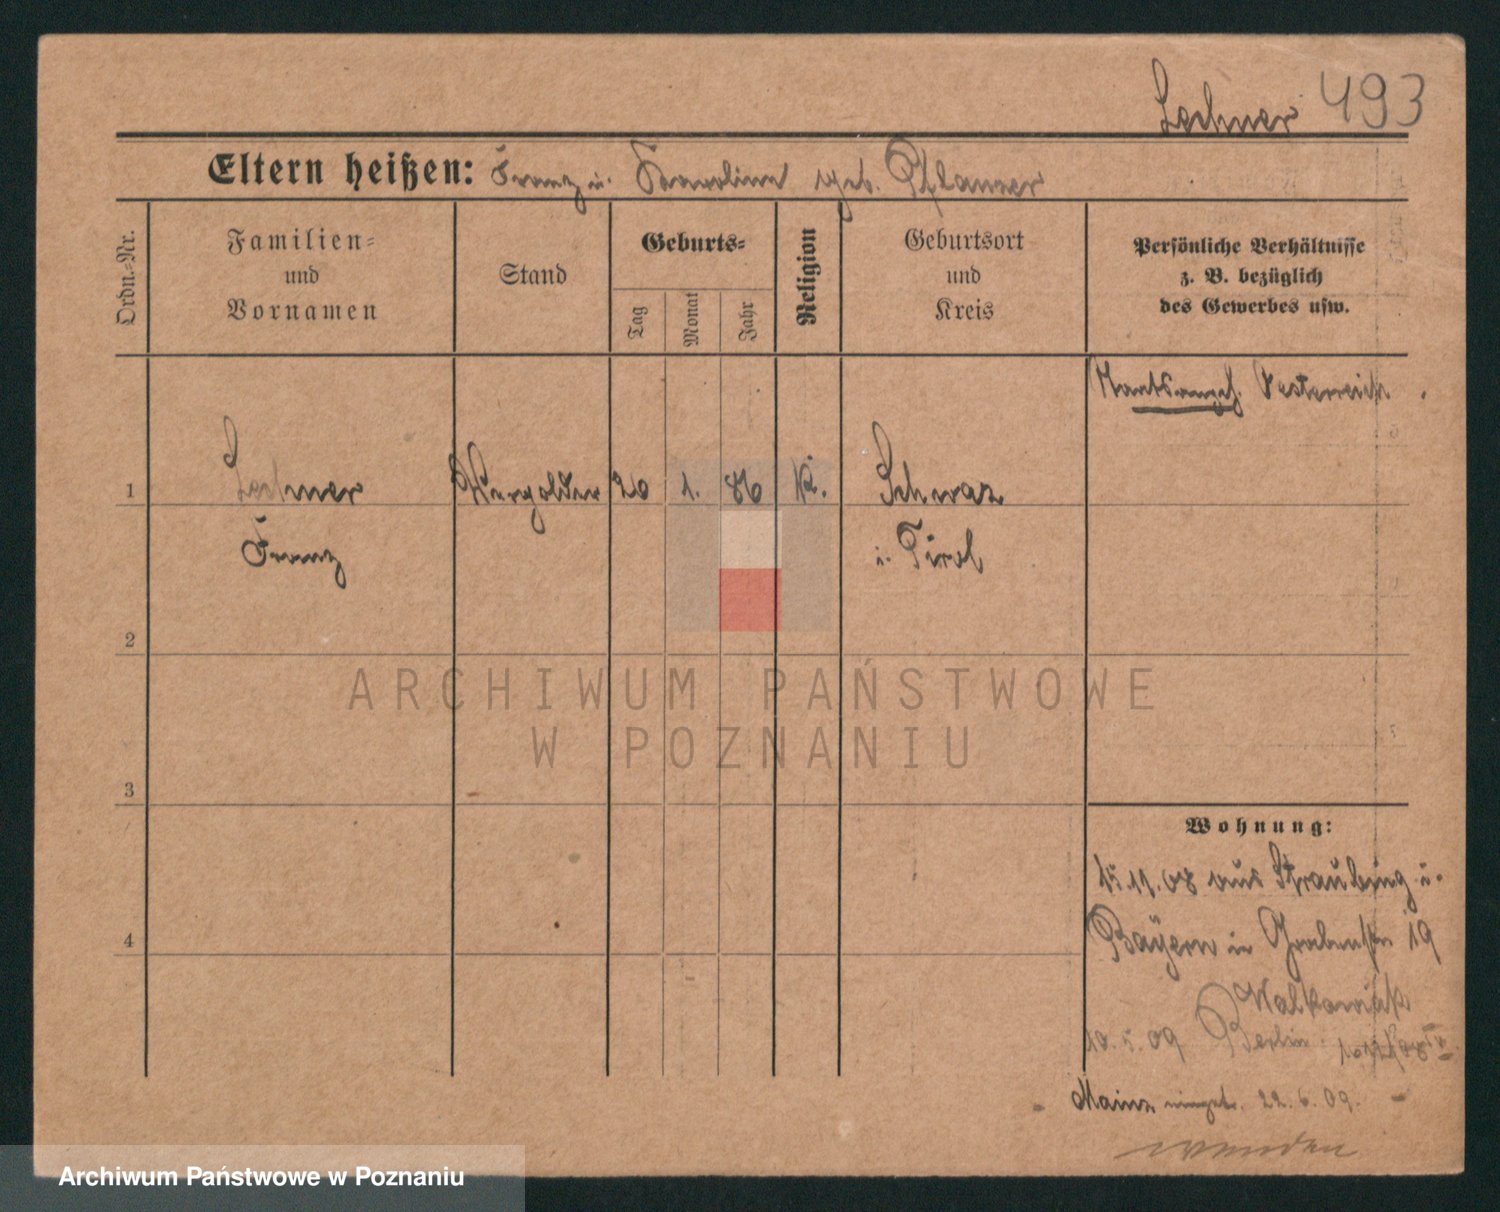 Lechner 493
Eltern heißen: Franz u. Karoline geb. Pflanzer
Ordn.-Nr.
Familien-
und
Vornamen
Stand
Geburts-
Tag
Monat
Jahr
Religion
Geburtsort
und
Kreis
Persönliche Verhältnisse
z. B. bezüglich
des Gewerbes usw.
Staatsangeh. Oesterreich.
1
Lechner
Vergolder
20
1.
86
K.
Schwaz
Franz
i. Tirol
2
ARCHIWUM PAŃSTWOWE
W POZNANIU
3
Wohnung:
15.11.08 aus Straubing i.
Bayern in Grabenstr 19
4
Walkowiak
10.5.09 Berlin
Mainz eingetr. 22.6.09.
wenden
Archiwum Państwowe w Poznaniu